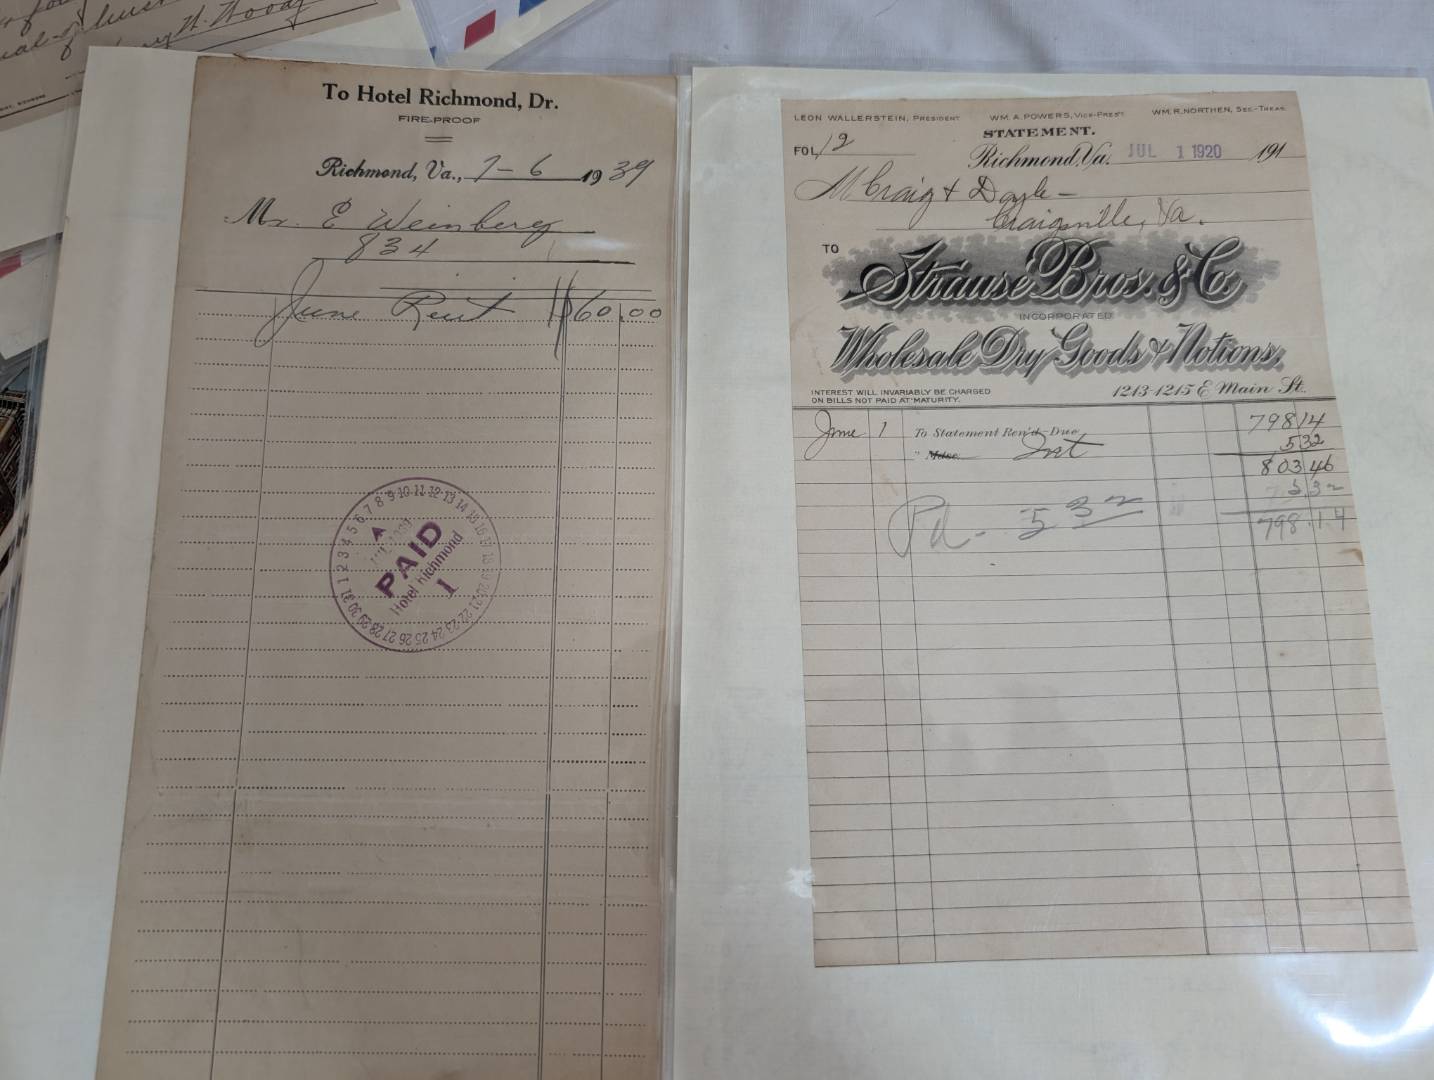 To Hotel Richmond, Dr.
FIRE-PROOF
Richmond, Va., 7-6 1939
Mr. E Weinberg
834
June Rent $60.00
1 2 3 4 5 6 7 8 9 10 11 12 13 14 15 16 17 18 19 20 21 22 23 24 25 26 27 28 29 30 31
A
PAID
Hotel Richmond
1
LEON WALLERSTEIN, PRESIDENT WM. A. POWERS, VICE-PREST WM. R. NORTHEN, SEC.-TREAS.
STATEMENT.
FOL 12 Richmond, Va. JUL 1 1920 191
M Craig & Doyle -
Craigsville, Va.
TO
Strause Bros. & Co.
INCORPORATED
Wholesale Dry Goods & Notions,
INTEREST WILL INVARIABLY BE CHARGED
ON BILLS NOT PAID AT MATURITY.
1213-1215 E Main St.
June 1 To Statement Ren'd Due 798 14
" Mdse. Int 5 32
803 46
Pd - 5 32 5 32
798.14